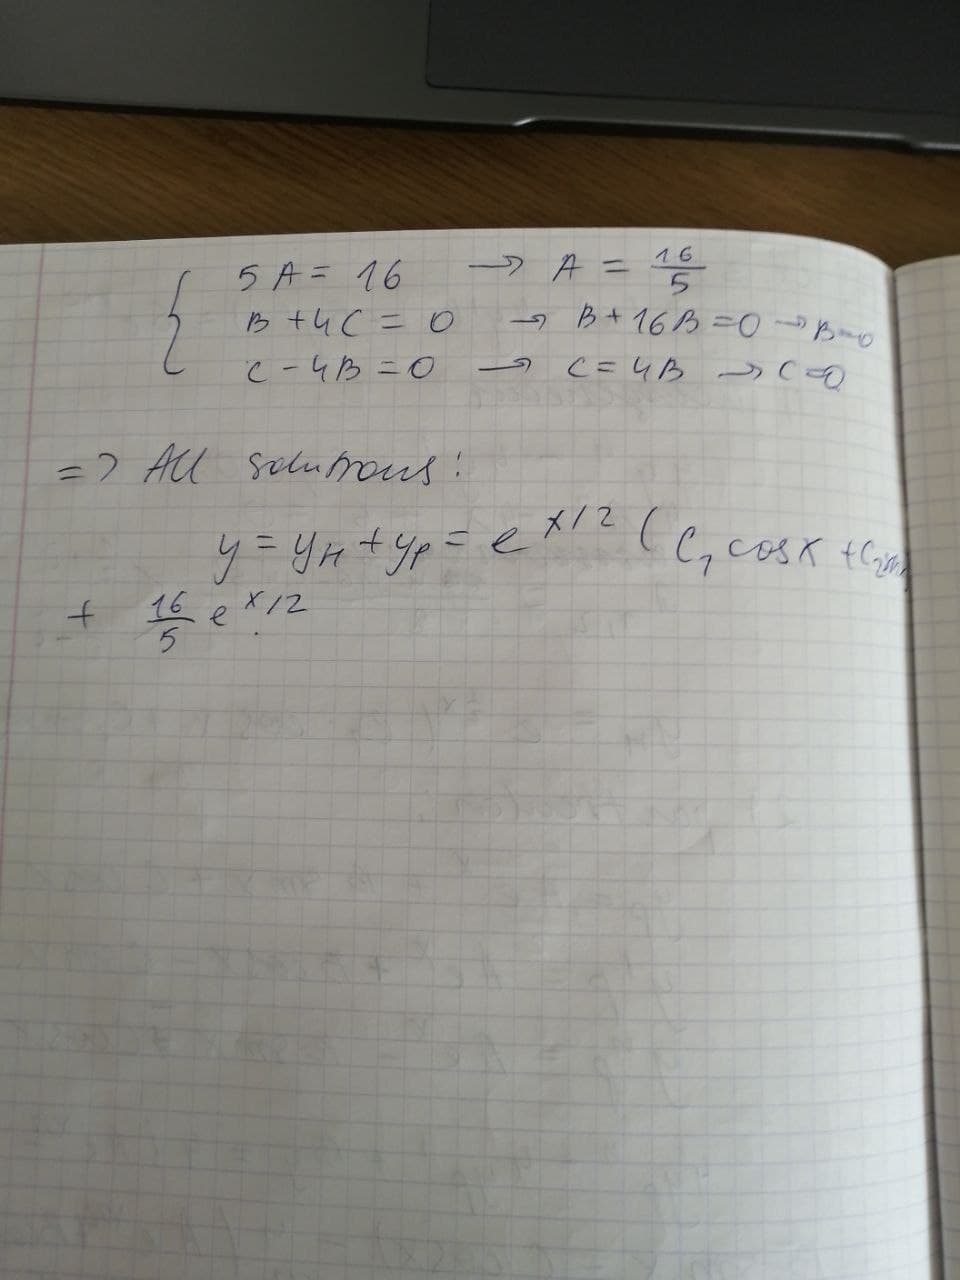 5A = 16 → A = 16/5
B + 4C = 0 → B + 16B = 0 → B=0
C - 4B = 0 → C = 4B → C=0
=> All solutions:
y = yH + yp = e^x/2 ( C1 cosx +
+ 16/5 e^x/2